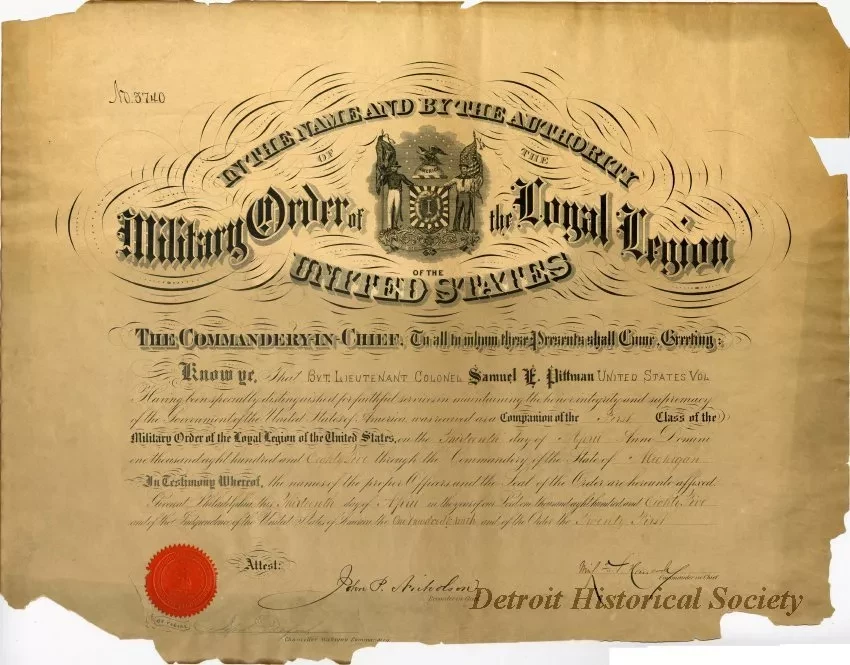 No. 3740
IN THE NAME AND BY THE AUTHORITY
OF THE
Military Order of the Loyal Legion
OF THE
UNITED STATES
THE COMMANDERY-IN-CHIEF. To all to whom these Presents shall Come, Greeting:
Know ye, That BVT. LIEUTENANT COLONEL Samuel E. Pittman UNITED STATES VOL
Having been specially distinguished for faithful services in maintaining the honor integrity and supremacy
of the Government of the United States of America was received as a Companion of the First Class of the
Military Order of the Loyal Legion of the United States, on the Thirteenth day of April Anno Domini
one thousand eight hundred and Eighty Five through the Commandery of the State of Michigan
In Testimony Whereof, the names of the proper Officers and the Seal of the Order are hereunto affixed.
Given at Philadelphia, this Thirteenth day of April in the year of our Lord one thousand eight hundred and Eighty Five
and of the Independence of the United States of America the One hundred ninth and of the Order the Twenty First
Attest:
John P. Nicholson
Commander in Chief
Recorder in Chief
Chancellor Michigan Commandery
Detroit Historical Society